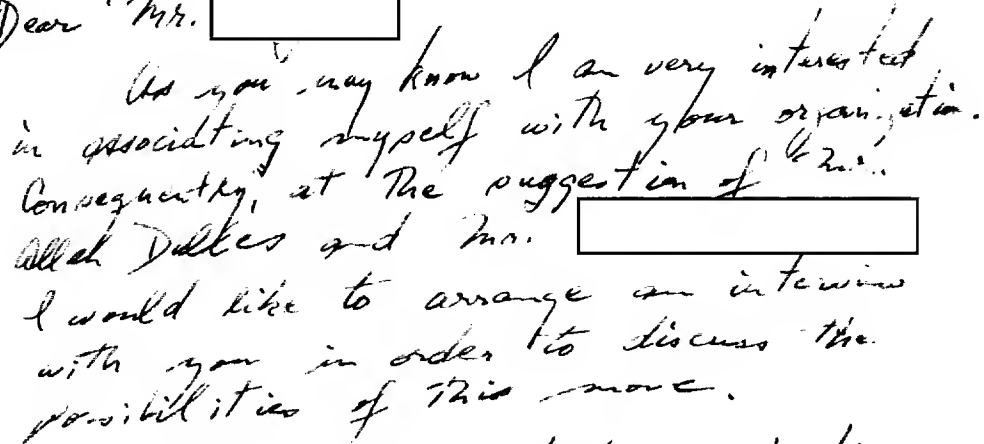 Dear Mr.
As you may know I am very interested
in associating myself with your organization.
Consequently, at the suggestion of Mr.
Allen Dulles and Mr.
I would like to arrange an interview
with you in order to discuss the
possibilities of this move.